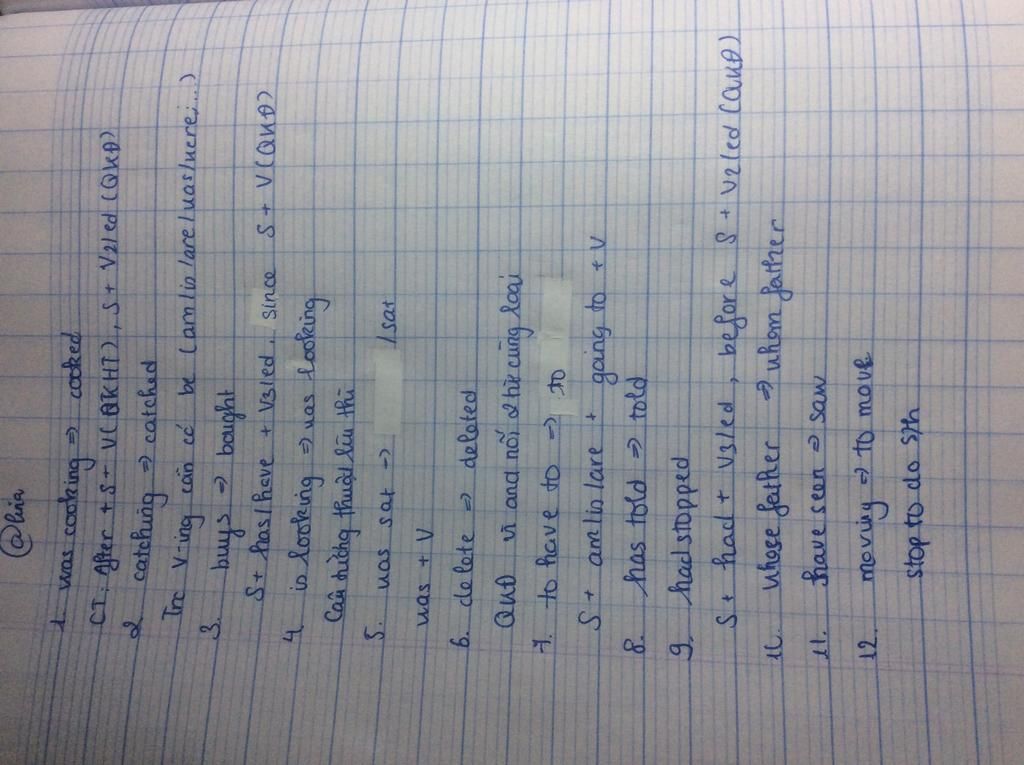 @linia
1. was cooking => cooked
CT: After + S + V(QKHT), S + V2/ed (QKĐ)
2. catching => catched
Trc V-ing cần có be (am/is/are/was/were;...)
3. buys => bought
S + has/have + V3/ed, since S + V(QKĐ)
4. is looking => was looking
Câu tường thuật lùi thì
5. was sat -> /sat
was + V
6. delete => deleted
QKĐ vì and nối 2 thì cùng loại
7. to have to => to
S + am/is/are + going to + V
8. has told => told
9. had stopped
S + had + V3/ed, before S + V2/ed (QKĐ)
10. whose father => whom father
11. have seen => saw
12. moving => to move
stop to do sth